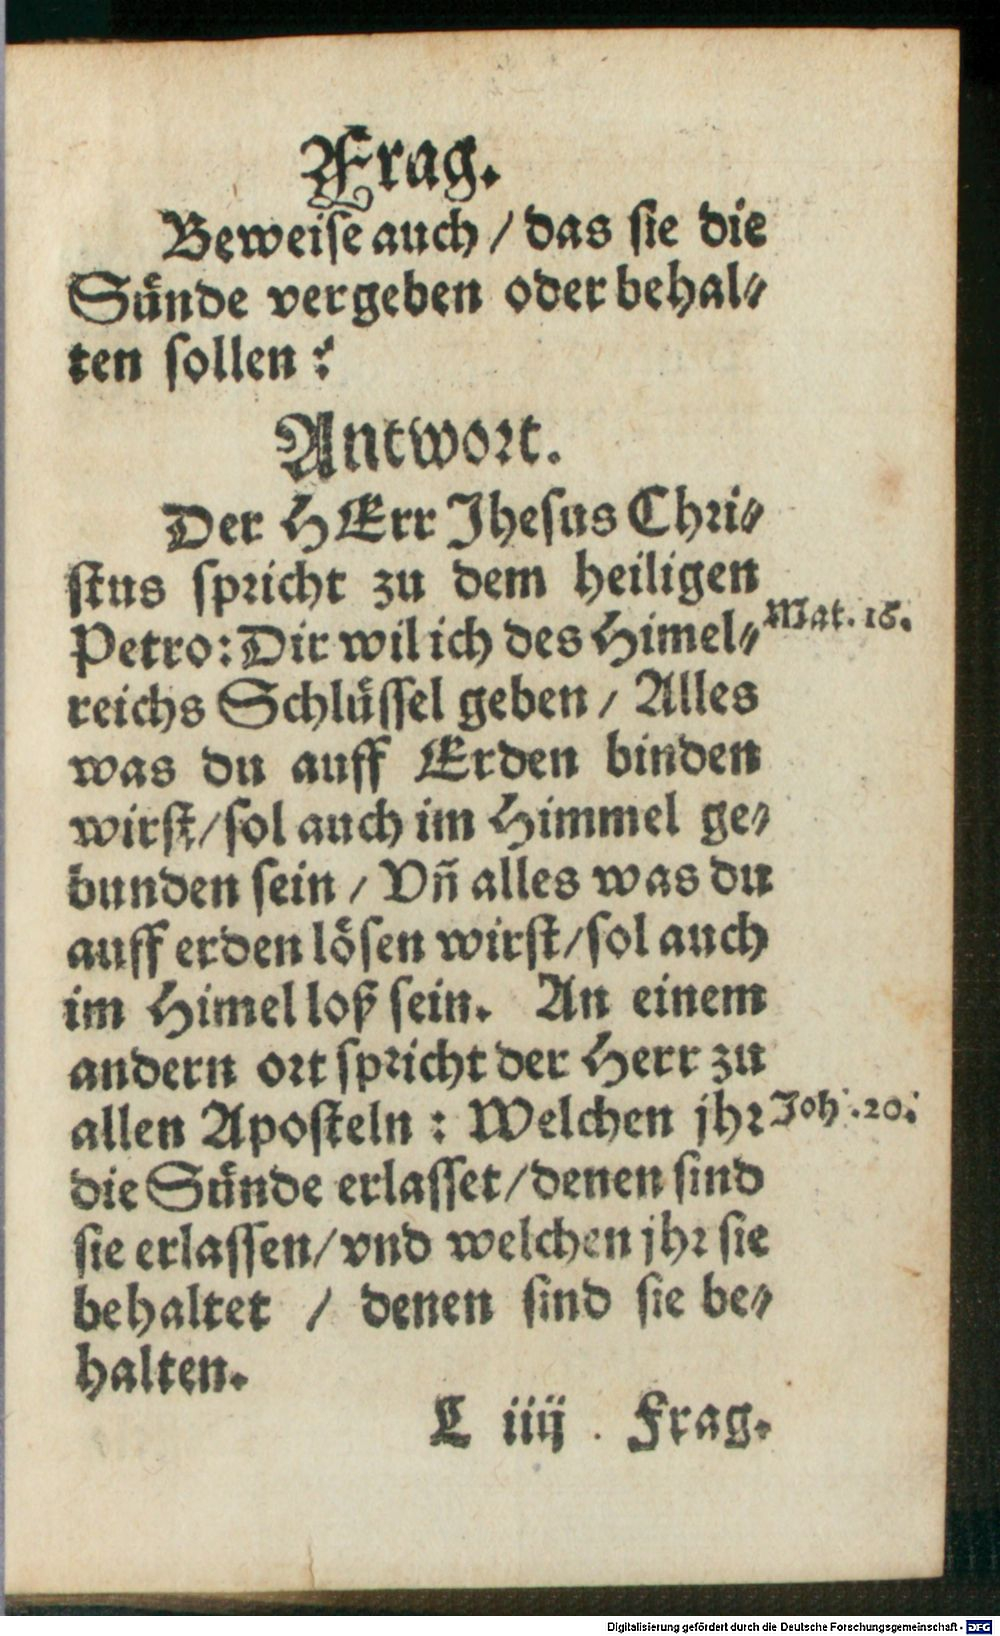 Frag.
Beweise auch / das sie die
Sünde vergeben oder behal-
ten sollen?
Antwort.
Der HErr Jhesus Chri-
stus spricht zu dem heiligen
Petro: Dir wil ich des Himel-
Mat. 16.
reichs Schlüssel geben / Alles
was du auff Erden binden
wirst / sol auch im Himmel ge-
bunden sein / Vñ alles was du
auff erden lösen wirst / sol auch
im Himel loß sein. An einem
andern ort spricht der Herr zu
allen Aposteln: Welchen jhr
Joh. 20.
die Sünde erlasset / denen sind
sie erlassen / vnd welchen jhr sie
behaltet / denen sind sie be-
halten.
L iiij Frag.
Digitalisierung gefördert durch die Deutsche Forschungsgemeinschaft - DFG